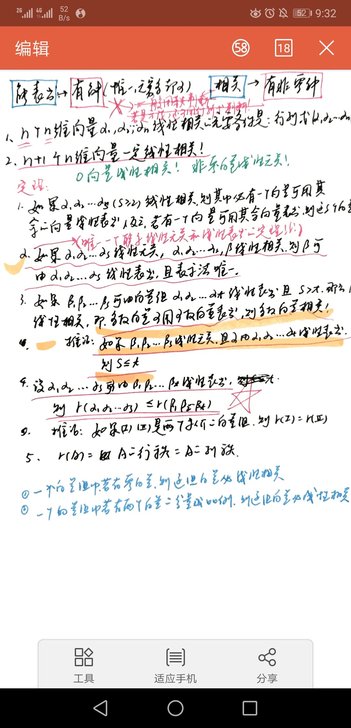 52 B/s
52 9:32
编辑
58
18
可表示 → 有解(唯一,无穷多解)
相关 → 有非零解
1. n个n维向量α₁,α₂…αₙ线性相关
2. n+1个n维向量一定线性相关!
0向量线性相关! 非零向量线性无关!
定理:
1. 如果α₁,α₂…αₛ(s≥2)线性相关,则其中必有一个向量可用其
余向量线性表出,反之,若有一个向量可用其余向量表出,则这s个向量
2. 如果α₁,α₂…αₛ线性无关,α₁,α₂…αₛ,β线性相关,则β可
由α₁,α₂…αₛ线性表出,且表示法唯一.
3. 如果β₁,β₂…βₛ可由向量组α₁,α₂…αₜ线性表出且s>t,
线性相关,即多数向量可用少数向量表出,则多数向量相关!
推论: 如果β₁,β₂…βₛ线性无关,且可由α₁,α₂…αₜ线性表出,
则s≤t
4. 设α₁,α₂…αₛ可由β₁,β₂…βₜ线性表出,
则r(α₁,α₂…αₛ)≤r(β₁β₂…βₜ)
推论: 如果(I)(II)是两个等价的向量组,则r(I)=r(II)
5. r(A)=A的行秩=A的列秩.
① 一个向量组中若有零向量,则这组向量必线性相关
② 一个向量组中若有两个向量的分量成比例,则这组向量必线性相关
工具
适应手机
分享